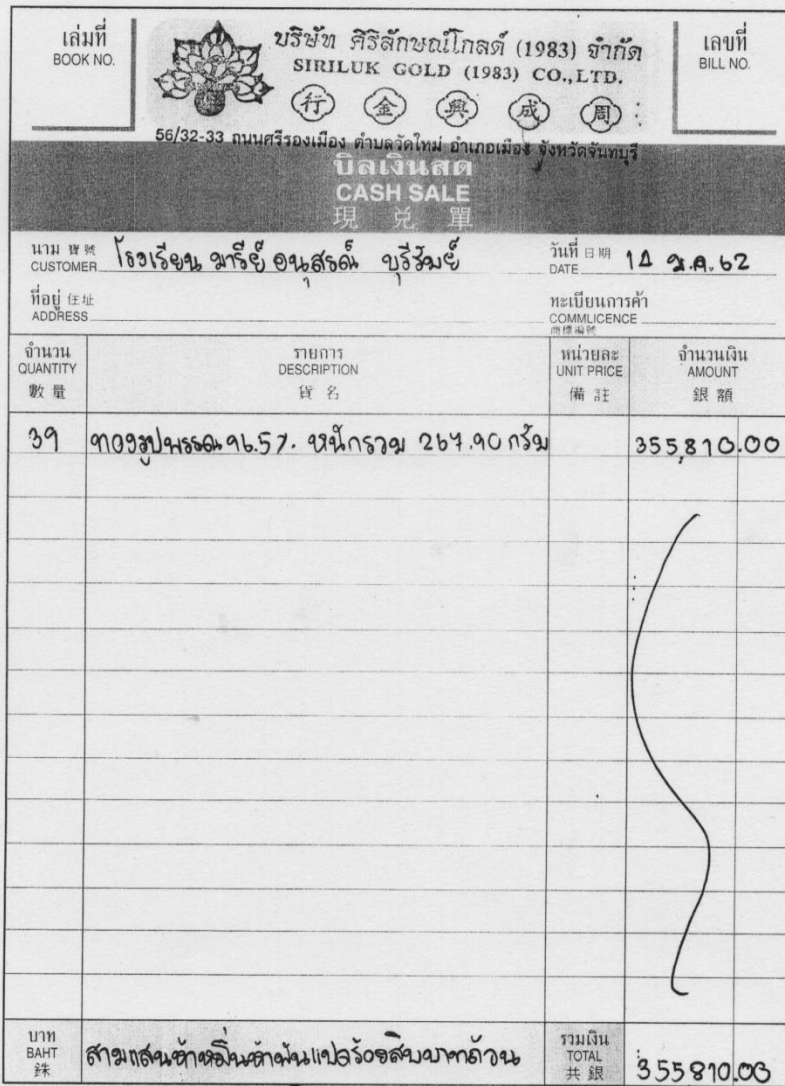 เล่มที่
BOOK NO.
บริษัท ศิริลักษณ์โกลด์ (1983) จำกัด
SIRILUK GOLD (1983) CO.,LTD.
行 金 興 成 周
เลขที่
BILL NO.
56/32-33 ถนนศรีรองเมือง ตำบลวัดใหม่ อำเภอเมือง จังหวัดจันทบุรี
บิลเงินสด
CASH SALE
現 兌 單
นาม 寶號 โรงเรียน มารีย์ อนุสรณ์ บุรีรัมย์
CUSTOMER
วันที่ 日期
DATE
ที่อยู่ 住址
ADDRESS
ทะเบียนการค้า
COMMLICENCE
商標編號
จำนวน
QUANTITY
數 量
รายการ
DESCRIPTION
貨 名
หน่วยละ
UNIT PRICE
備 註
จำนวนเงิน
AMOUNT
銀 額
39 ทองรูปพรรณ 96.5%. หนักรวม กรัม 355,810.00
บาท
BAHT
銖
สามแสนห้าหมื่นห้าพันแปดร้อยสิบบาทถ้วน
รวมเงิน
TOTAL
共 銀
355810.00